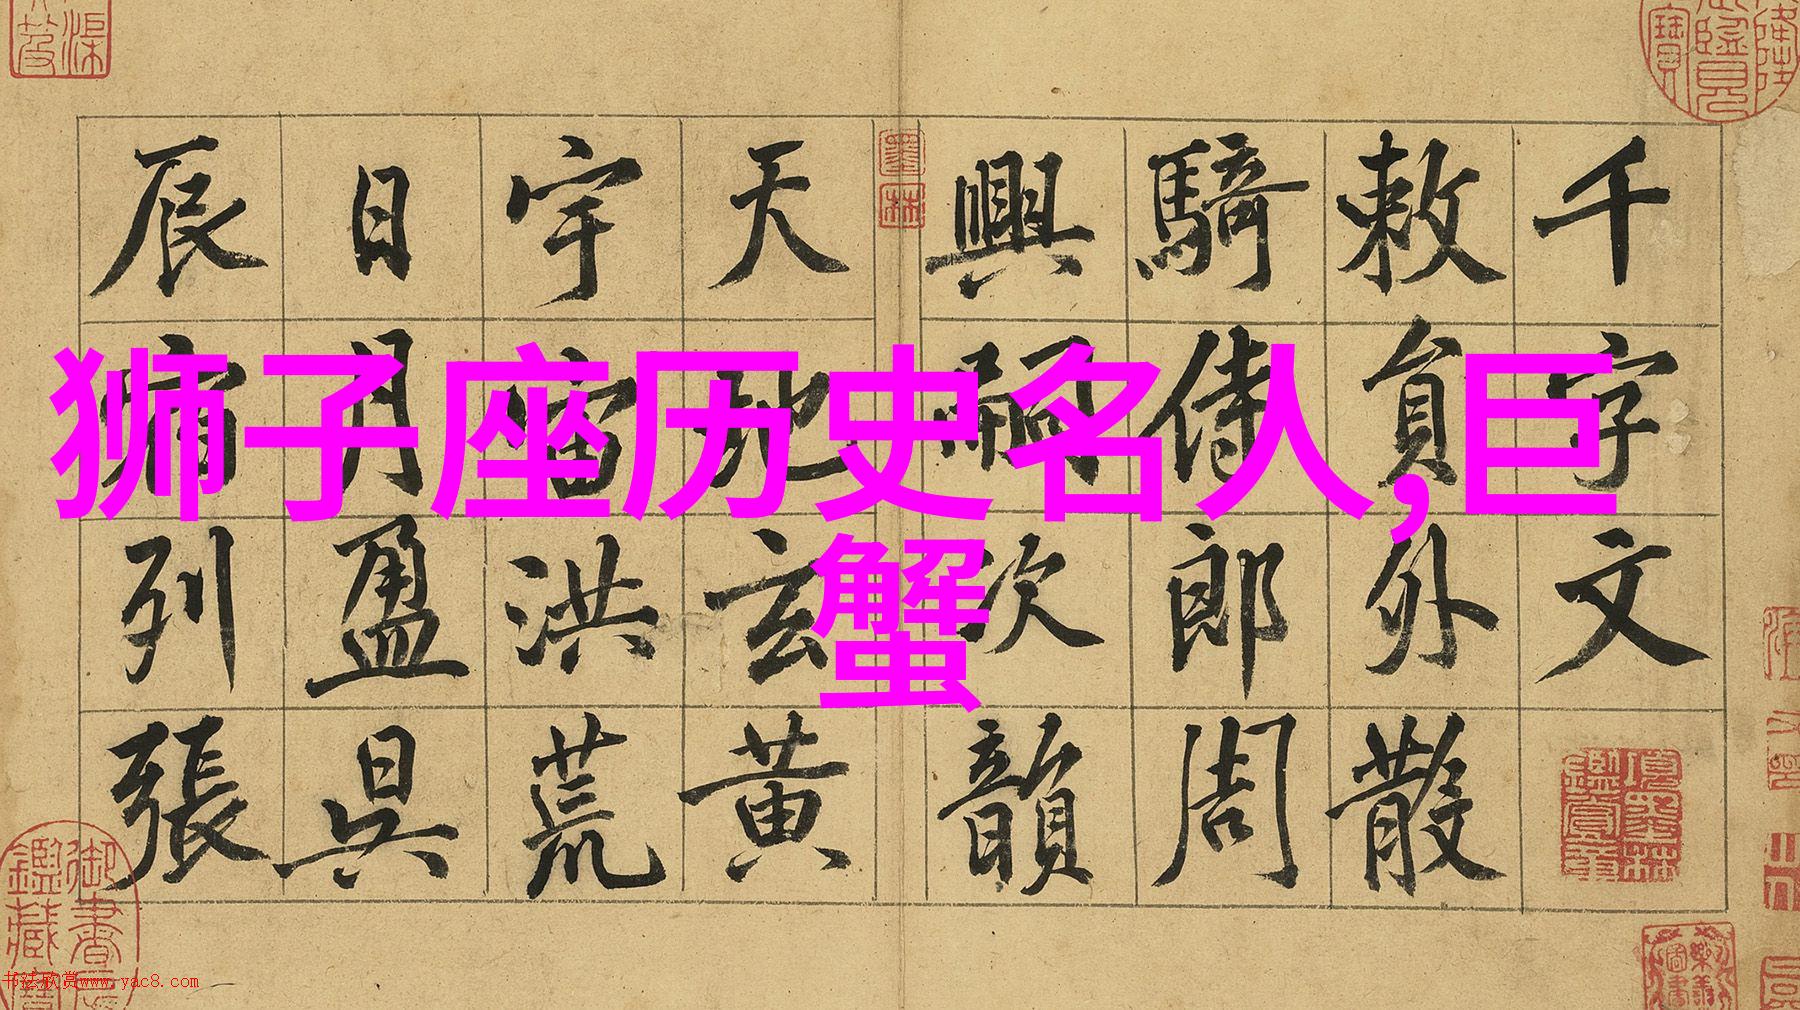 狮子座历史名人,巨
蟹
千字文
敕員外散
騎侍郎周
興嗣次韻
天地玄黄
宇宙洪荒
日月盈昃
辰宿列張
墨林
书法欣赏www.yac8.com